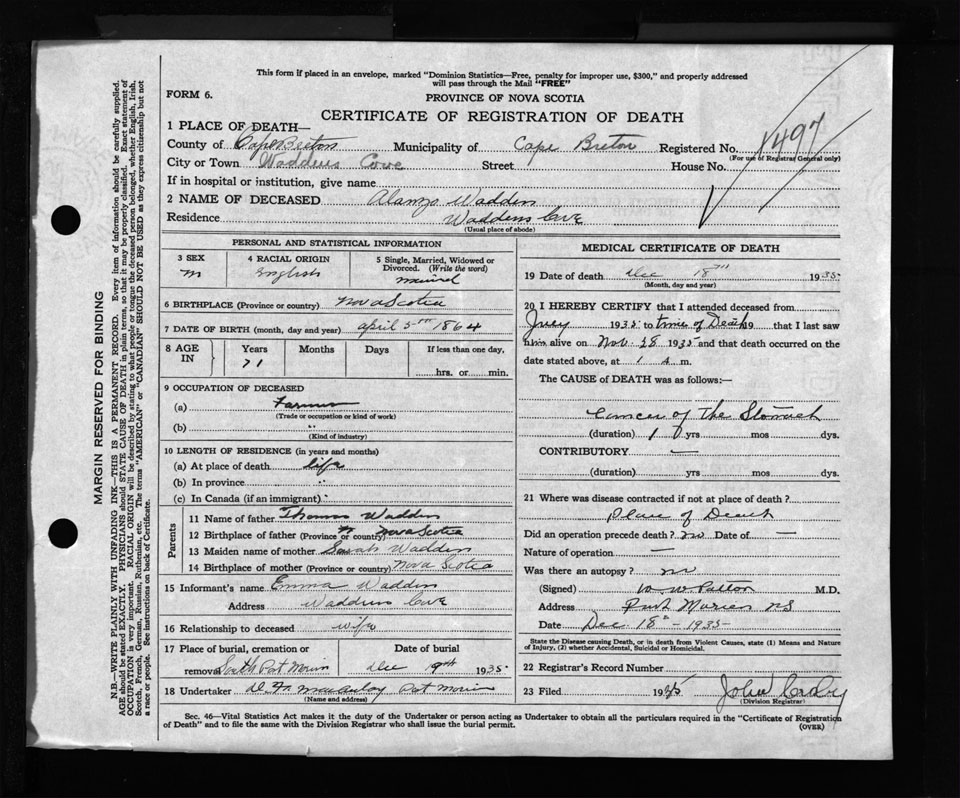 This form if placed in an envelope, marked "Dominion Statistics—Free, penalty for improper use, $300," and properly addressed
will pass through the Mail "FREE"
FORM 6.
PROVINCE OF NOVA SCOTIA
CERTIFICATE OF REGISTRATION OF DEATH
1 PLACE OF DEATH—
County of Cape Breton Municipality of Cape Breton Registered No. 1497
(For use of Registrar General only)
City or Town Waddens Cove Street House No.
If in hospital or institution, give name
2 NAME OF DECEASED Alanzo Wadden
Residence Waddens Cove
(Usual place of abode)
PERSONAL AND STATISTICAL INFORMATION
3 SEX 4 RACIAL ORIGIN 5 Single, Married, Widowed or
Divorced. (Write the word)
m English married
6 BIRTHPLACE (Province or country) Nova Scotia
7 DATE OF BIRTH (month, day and year) april 5th 1864
8 AGE IN Years Months Days If less than one day,
71 hrs. or min.
9 OCCUPATION OF DECEASED
(a) Farmer
(Trade or occupation or kind of work)
(b) "
(Kind of industry)
10 LENGTH OF RESIDENCE (in years and months)
(a) At place of death life
(b) In province "
(c) In Canada (if an immigrant) "
Parents
11 Name of father Thomas Wadden
12 Birthplace of father (Province or country) Nova Scotia
13 Maiden name of mother Sarah Wadden
14 Birthplace of mother (Province or country) Nova Scotia
15 Informant's name Emma Wadden
Address Waddens Cove
16 Relationship to deceased wife
17 Place of burial, cremation or Date of burial
removal South Port Morien Dec 19th 1935
18 Undertaker D. A. MacAulay Port Morien
(Name and address)
MEDICAL CERTIFICATE OF DEATH
19 Date of death Dec 18TH 1935
(Month, day and year)
20 I HEREBY CERTIFY that I attended deceased from
July 1935 to time of Death 19 that I last saw
him alive on Nov. 28 1935 and that death occurred on the
date stated above, at 1 a m.
The CAUSE of DEATH was as follows:—
Cancer of the Stomach
(duration) 1 yrs mos dys.
CONTRIBUTORY —
(duration) yrs mos dys.
21 Where was disease contracted if not at place of death?
Place of Death
Did an operation precede death? no Date of —
Nature of operation —
Was there an autopsy? no
(Signed) W. W. Patton M.D.
Address Port Morien NS
Date Dec. 18th - 1935
State the Disease causing Death, or in death from Violent Causes, state (1) Means and Nature
of Injury, (2) whether Accidental, Suicidal or Homicidal.
22 Registrar's Record Number
23 Filed 1935 John
(Division Registrar)
Sec. 46—Vital Statistics Act makes it the duty of the Undertaker or person acting as Undertaker to obtain all the particulars required in the "Certificate of Registration
of Death" and to file the same with the Division Registrar who shall issue the burial permit. (OVER)
MARGIN RESERVED FOR BINDING
N.B.—WRITE PLAINLY WITH UNFADING INK—THIS IS A PERMANENT RECORD. Every item of information should be carefully supplied.
AGE should be stated EXACTLY. PHYSICIANS should STATE CAUSE OF DEATH in plain terms, so that it may be properly classified. Exact statement of
OCCUPATION is very important. RACIAL ORIGIN will be described by stating to what people or tongue the deceased person belonged, whether English, Irish,
Scotch, French, German, Russian, Ruthenian, etc. The terms "AMERICAN" or "CANADIAN" SHOULD NOT BE USED as they express citizenship but not
a race or people. See instructions on back of Certificate.